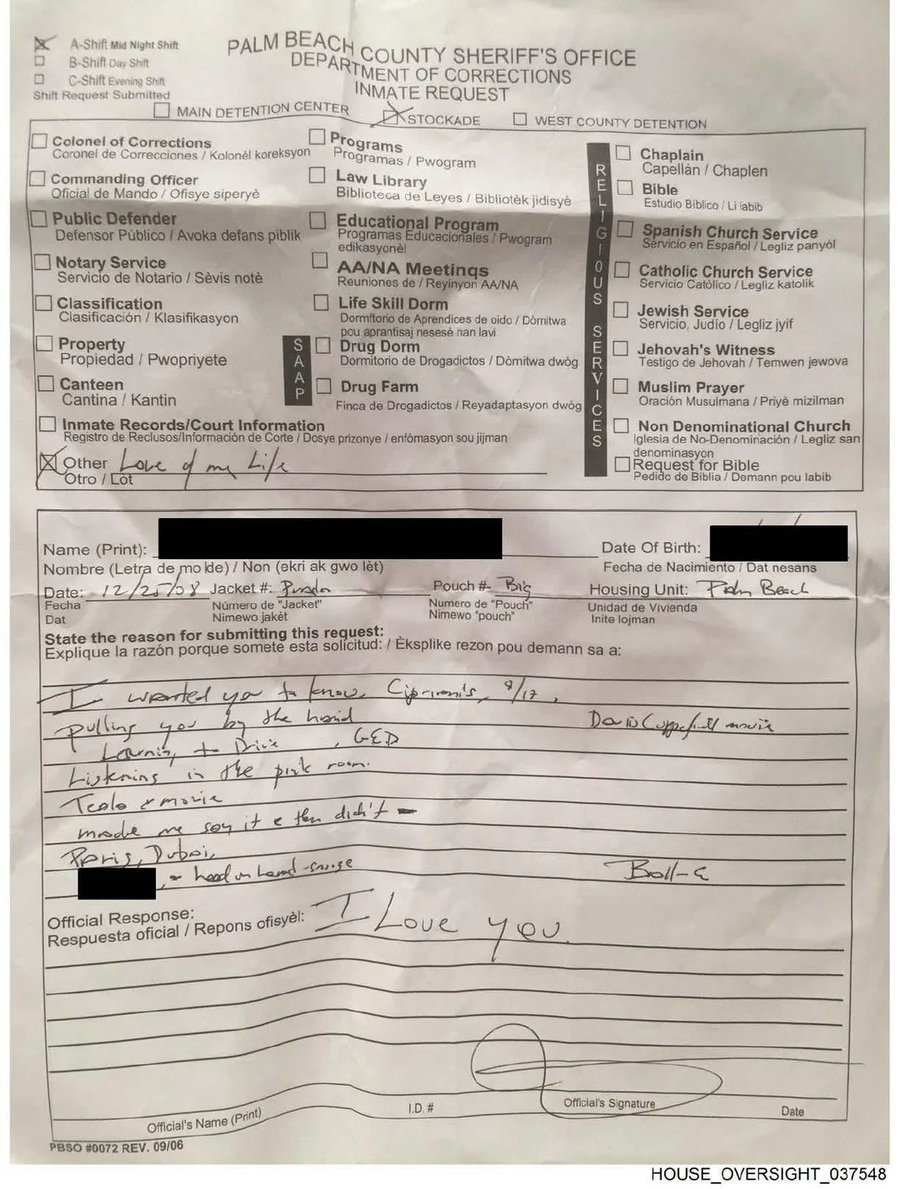 A-Shift Mid Night Shift
B-Shift Day Shift
C-Shift Evening Shift
Shift Request Submitted
PALM BEACH COUNTY SHERIFF'S OFFICE
DEPARTMENT OF CORRECTIONS
INMATE REQUEST
MAIN DETENTION CENTER STOCKADE WEST COUNTY DETENTION
Colonel of Corrections
Coronel de Correcciones / Kolonèl koreksyon
Commanding Officer
Oficial de Mando / Ofisye siperyè
Public Defender
Defensor Público / Avoka defans piblik
Notary Service
Servicio de Notario / Sèvis notè
Classification
Clasificación / Klasifikasyon
Property
Propiedad / Pwopriyete
Canteen
Cantina / Kantin
Inmate Records/Court Information
Registro de Reclusos/Información de Corte / Dosye prizonye / enfòmasyon sou jijman
Other Love of my Life
Otro / Lòt
Programs
Programas / Pwogram
Law Library
Biblioteca de Leyes / Bibliotèk jidisyè
Educational Program
Programas Educacionales / Pwogram
edikasyonèl
AA/NA Meetings
Reuniones de / Reyinyon AA/NA
SAAP
Life Skill Dorm
Dormitorio de Aprendices de oido / Dòmitwa
pou aprantisaj nesesè nan lavi
Drug Dorm
Dormitorio de Drogadictos / Dòmitwa dwòg
Drug Farm
Finca de Drogadictos / Reyadaptasyon dwòg
RELIGIOUS SERVICES
Chaplain
Capellán / Chaplen
Bible
Estudio Bíblico / Li labib
Spanish Church Service
Servicio en Español / Legliz panyòl
Catholic Church Service
Servicio Católico / Legliz katolik
Jewish Service
Servicio, Judío / Legliz jyif
Jehovah's Witness
Testigo de Jehovah / Temwen jewova
Muslim Prayer
Oración Musulmana / Priyè mizilman
Non Denominational Church
Iglesia de No-Denominación / Legliz san
denominasyon
Request for Bible
Pedido de Biblia / Demann pou labib
Name (Print): Date Of Birth:
Nombre (Letra de molde) / Non (ekri ak gwo lèt) Fecha de Nacimiento / Dat nesans
Date: 12/25/08 Jacket #: Prada Pouch #- Big Housing Unit: Palm Beach
Fecha Número de "Jacket" Numero de "Pouch" Unidad de Vivienda
Dat Nimewo jakèt Nimewo "pouch" Inite lojman
State the reason for submitting this request:
Explique la razón porque somete esta solicitud: / Èksplike rezon pou demann sa a:
I wanted you to know, Cipriani's,
pulling you by the hand David Copperfield movie
Learning to Drive, GED
Listening in the pink room.
movie
made me say it & then didn't –
Paris, Dubai,
head on hand
Official Response: I Love you
Respuesta oficial / Repons ofisyèl:
Official's Name (Print) I.D. # Official's Signature Date
PBSO #0072 REV. 09/06
HOUSE_OVERSIGHT_037548